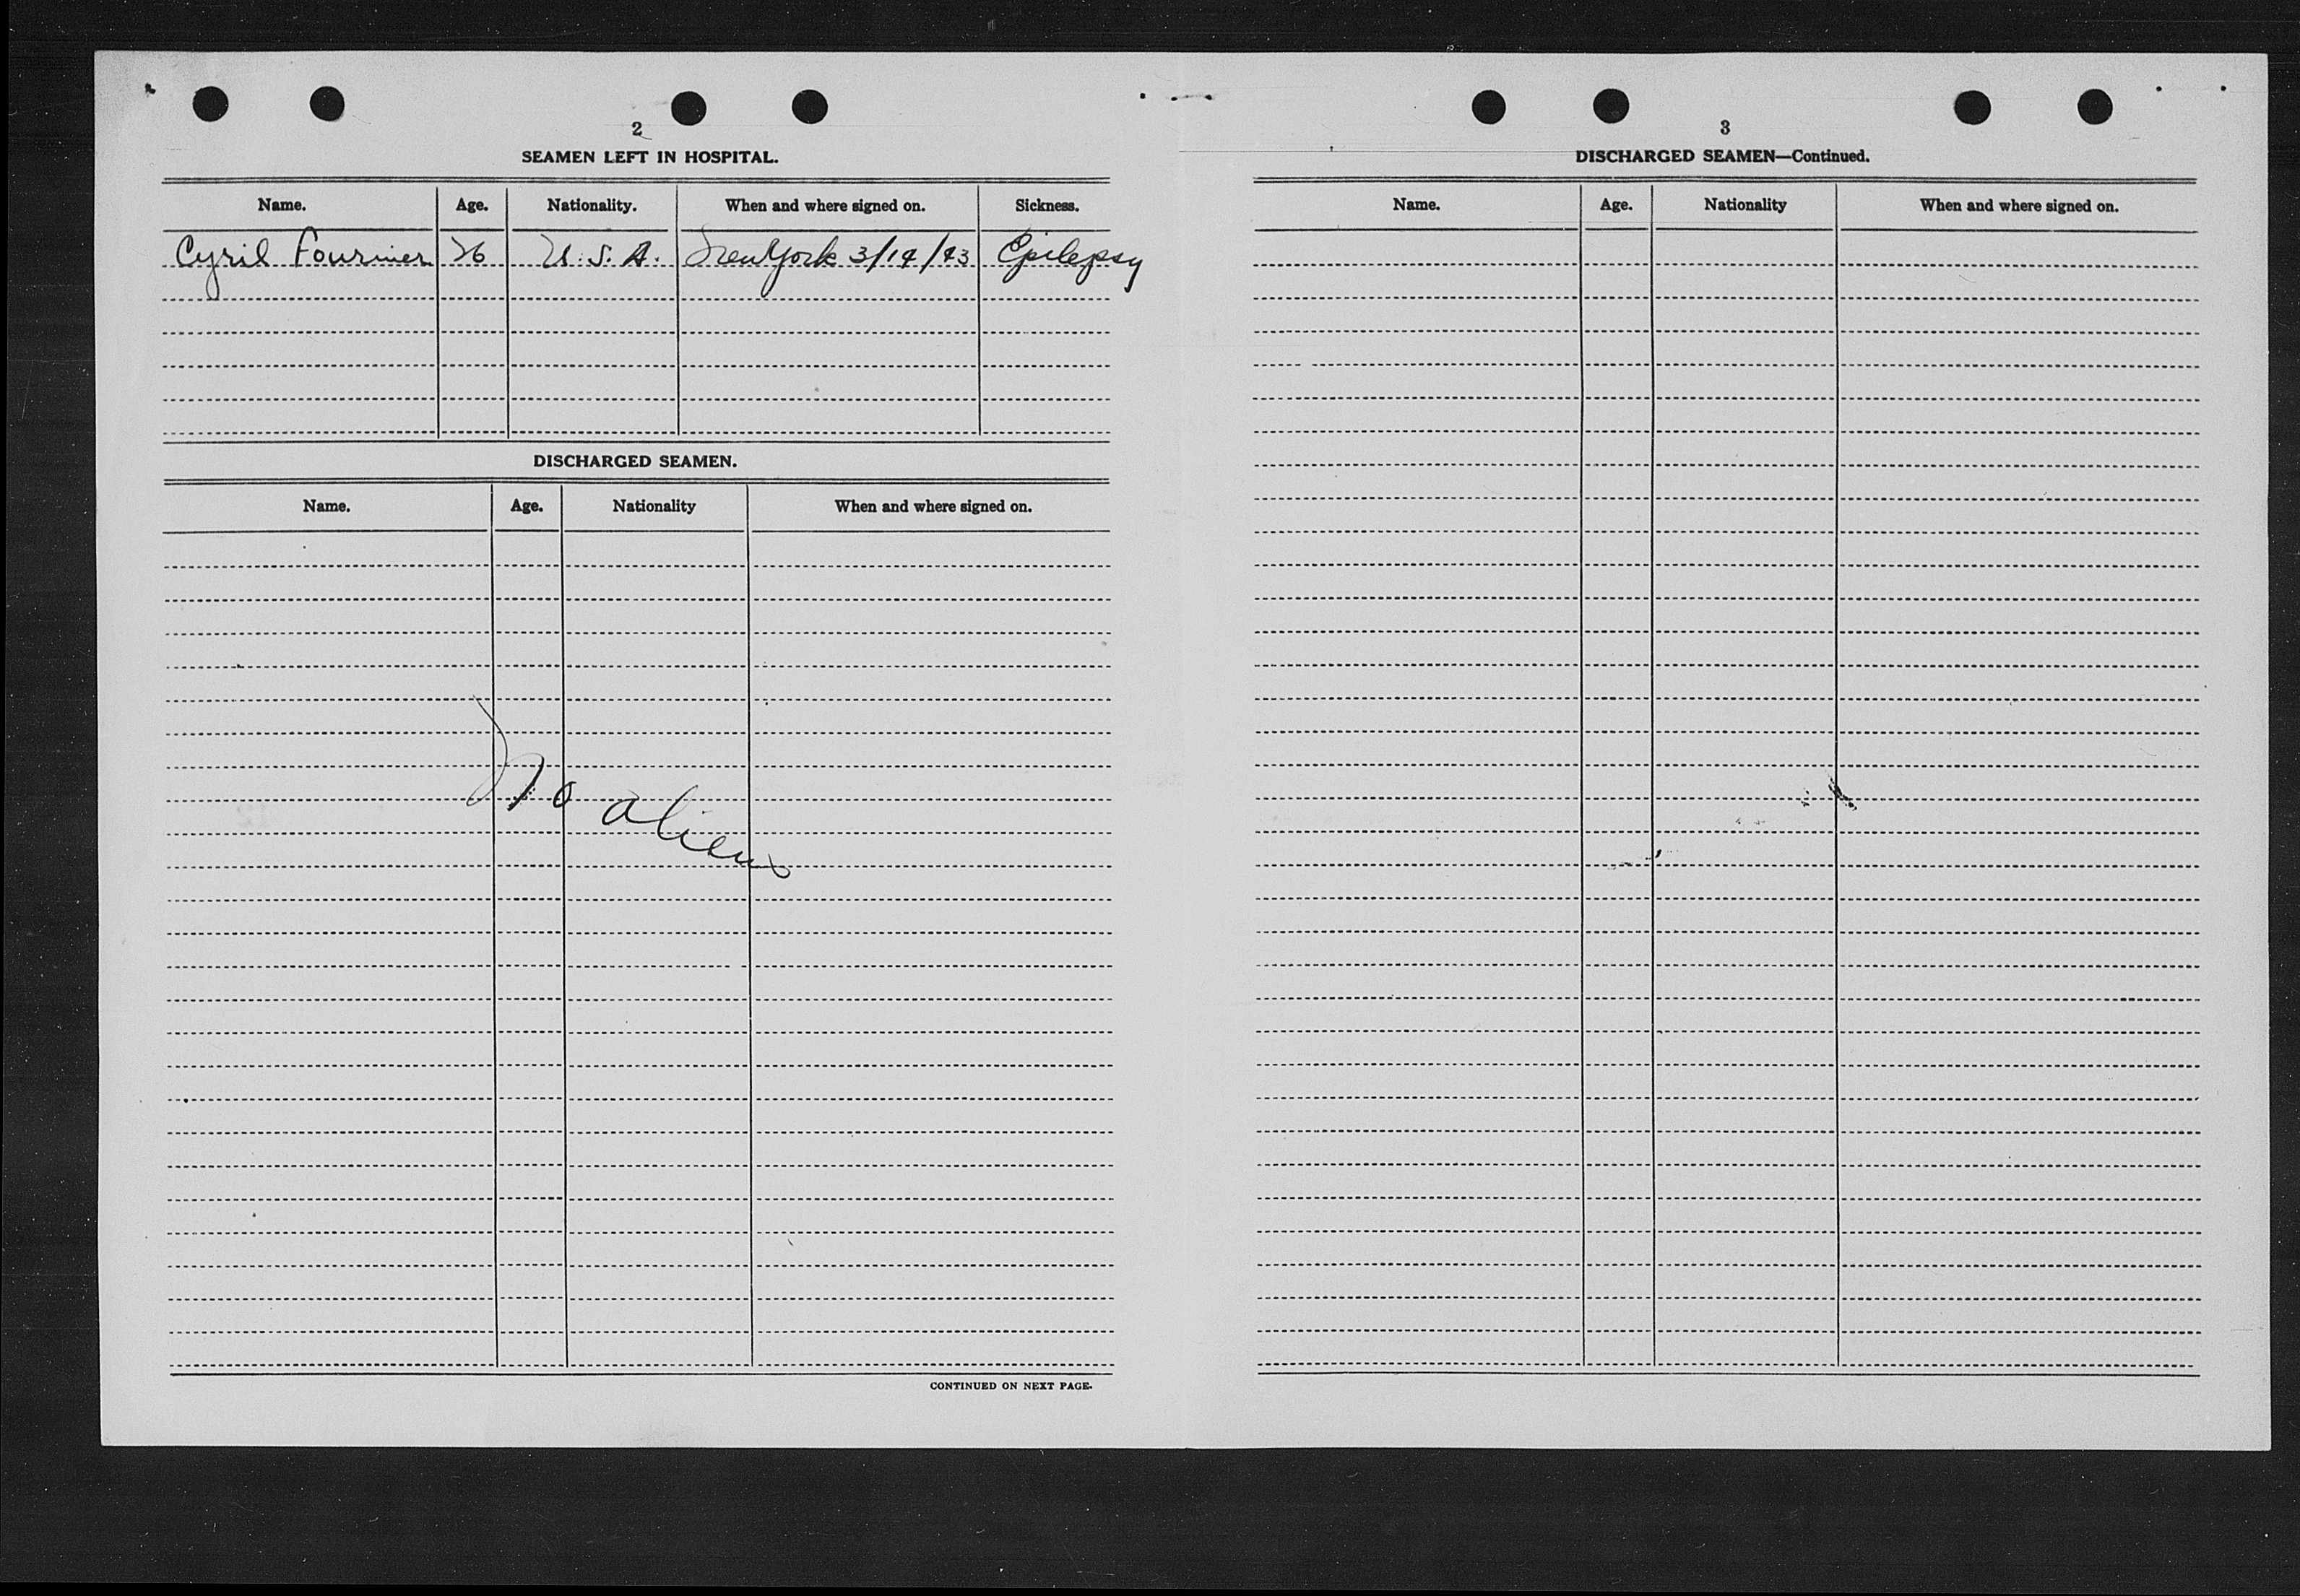 2
SEAMEN LEFT IN HOSPITAL.
Name. Age. Nationality. When and where signed on. Sickness.
Cyril Fournier 26 U.S.A. New York 3/14/43 Epilepsy
DISCHARGED SEAMEN.
Name. Age. Nationality When and where signed on.
No aliens
CONTINUED ON NEXT PAGE.
3
DISCHARGED SEAMEN—Continued.
Name. Age. Nationality When and where signed on.